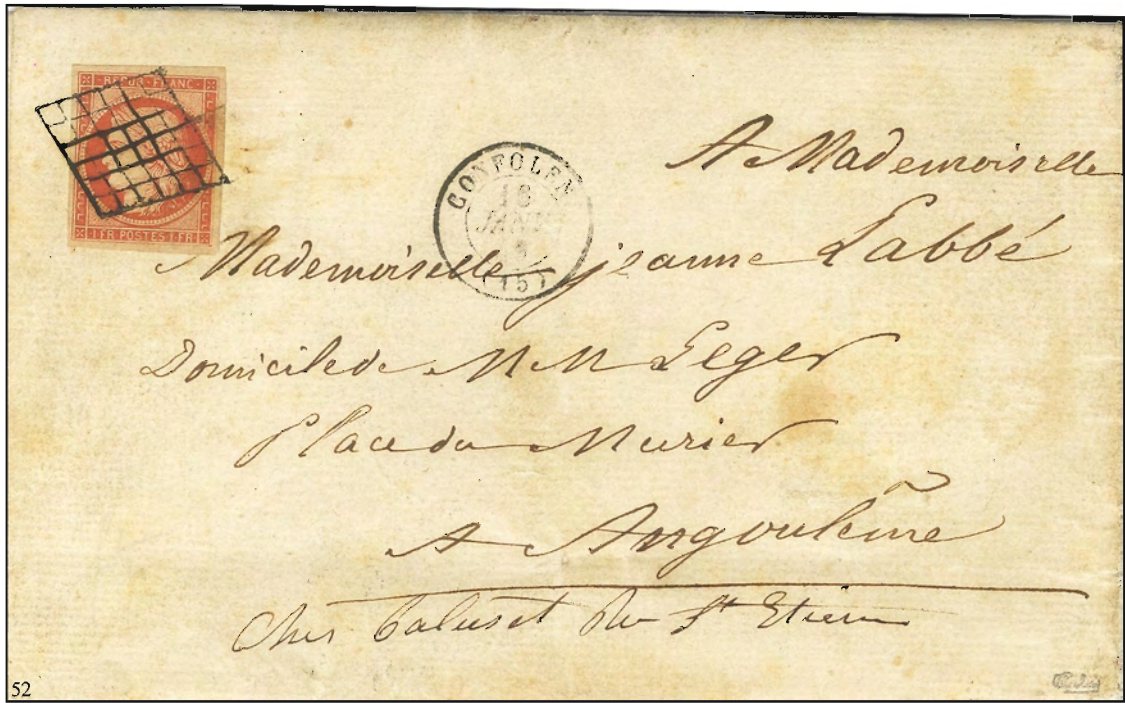 REPUB. FRANC.
1 FR POSTES 1 FR
CONFOLEN
16
JANV.
(15)
A Mademoiselle
Mademoiselle jeanne Labbé
Domicile de M M Leger
Place du Murier
A Angoulême
Chez Rue St Etienne
52